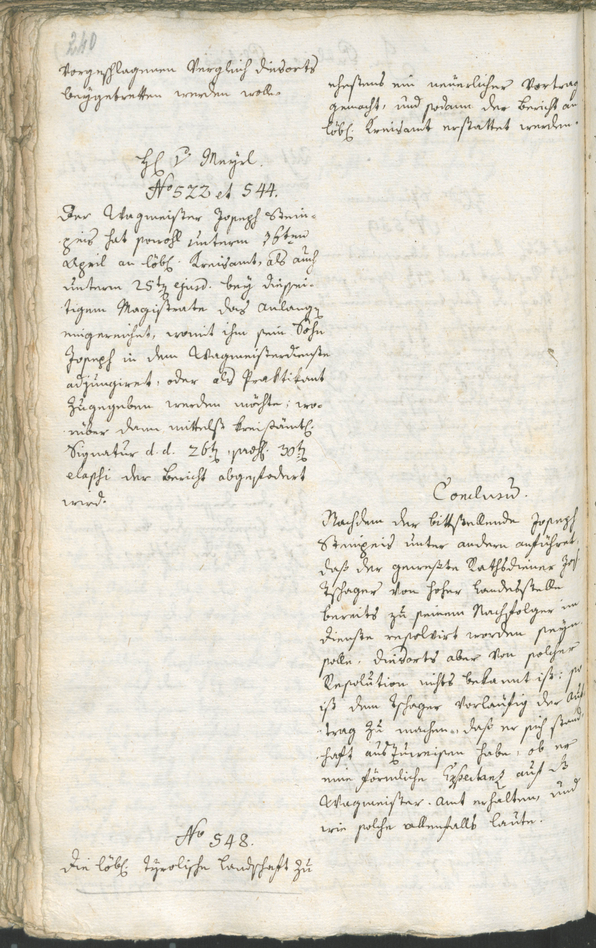 240
vorgeschlagenen Verglich diesorts
beygetretten werden wolle.
ehestens ein neuerlicher Vortrag
gemacht, und sodann der Bericht an
löbl. Kreisamt erstattet werden.
H. v. Meyrl.
No 522 et 544.
Der Wagmeister Joseph Stein-
peis hat sowohl unterm 16ten
April an löbl. Kreisamt, als auch
unterm 25t ejusd. bey diessei-
tigem Magistrate das Anlangen
eingereichet, womit ihm sein Sohn
Joseph in dem Wagmeisterdienste
adjungiret, oder als Praktikant
zugegeben werden möchte; wo-
rüber dann mittelst kreisämtl.
Signatur d. d. 26t, praes. 30t
elapsi der Bericht abgefodert
wird.
Conclusū.
Nachdem der bittstellende Joseph
Steinpeis unter andern anführet,
daß der geweßte Rathsdiener Jos.
Tschager von hoher Landesstelle
bereits zu seinem Nachfolger im
Dienste resolvirt worden seyn
solle. diesorts aber von solcher
Resolution nichts bekannt ist: so
ist dem Tschager vorläufig der Auf-
trag zu machen, daß er sich stand-
haft auszuweisen habe, ob er
eine förmliche Exspectanz auf das
Wagmeister-Amt erhalten, und
wie solche allenfalls laute.
No 548.
Die löbl. tyrolische Landschaft zu